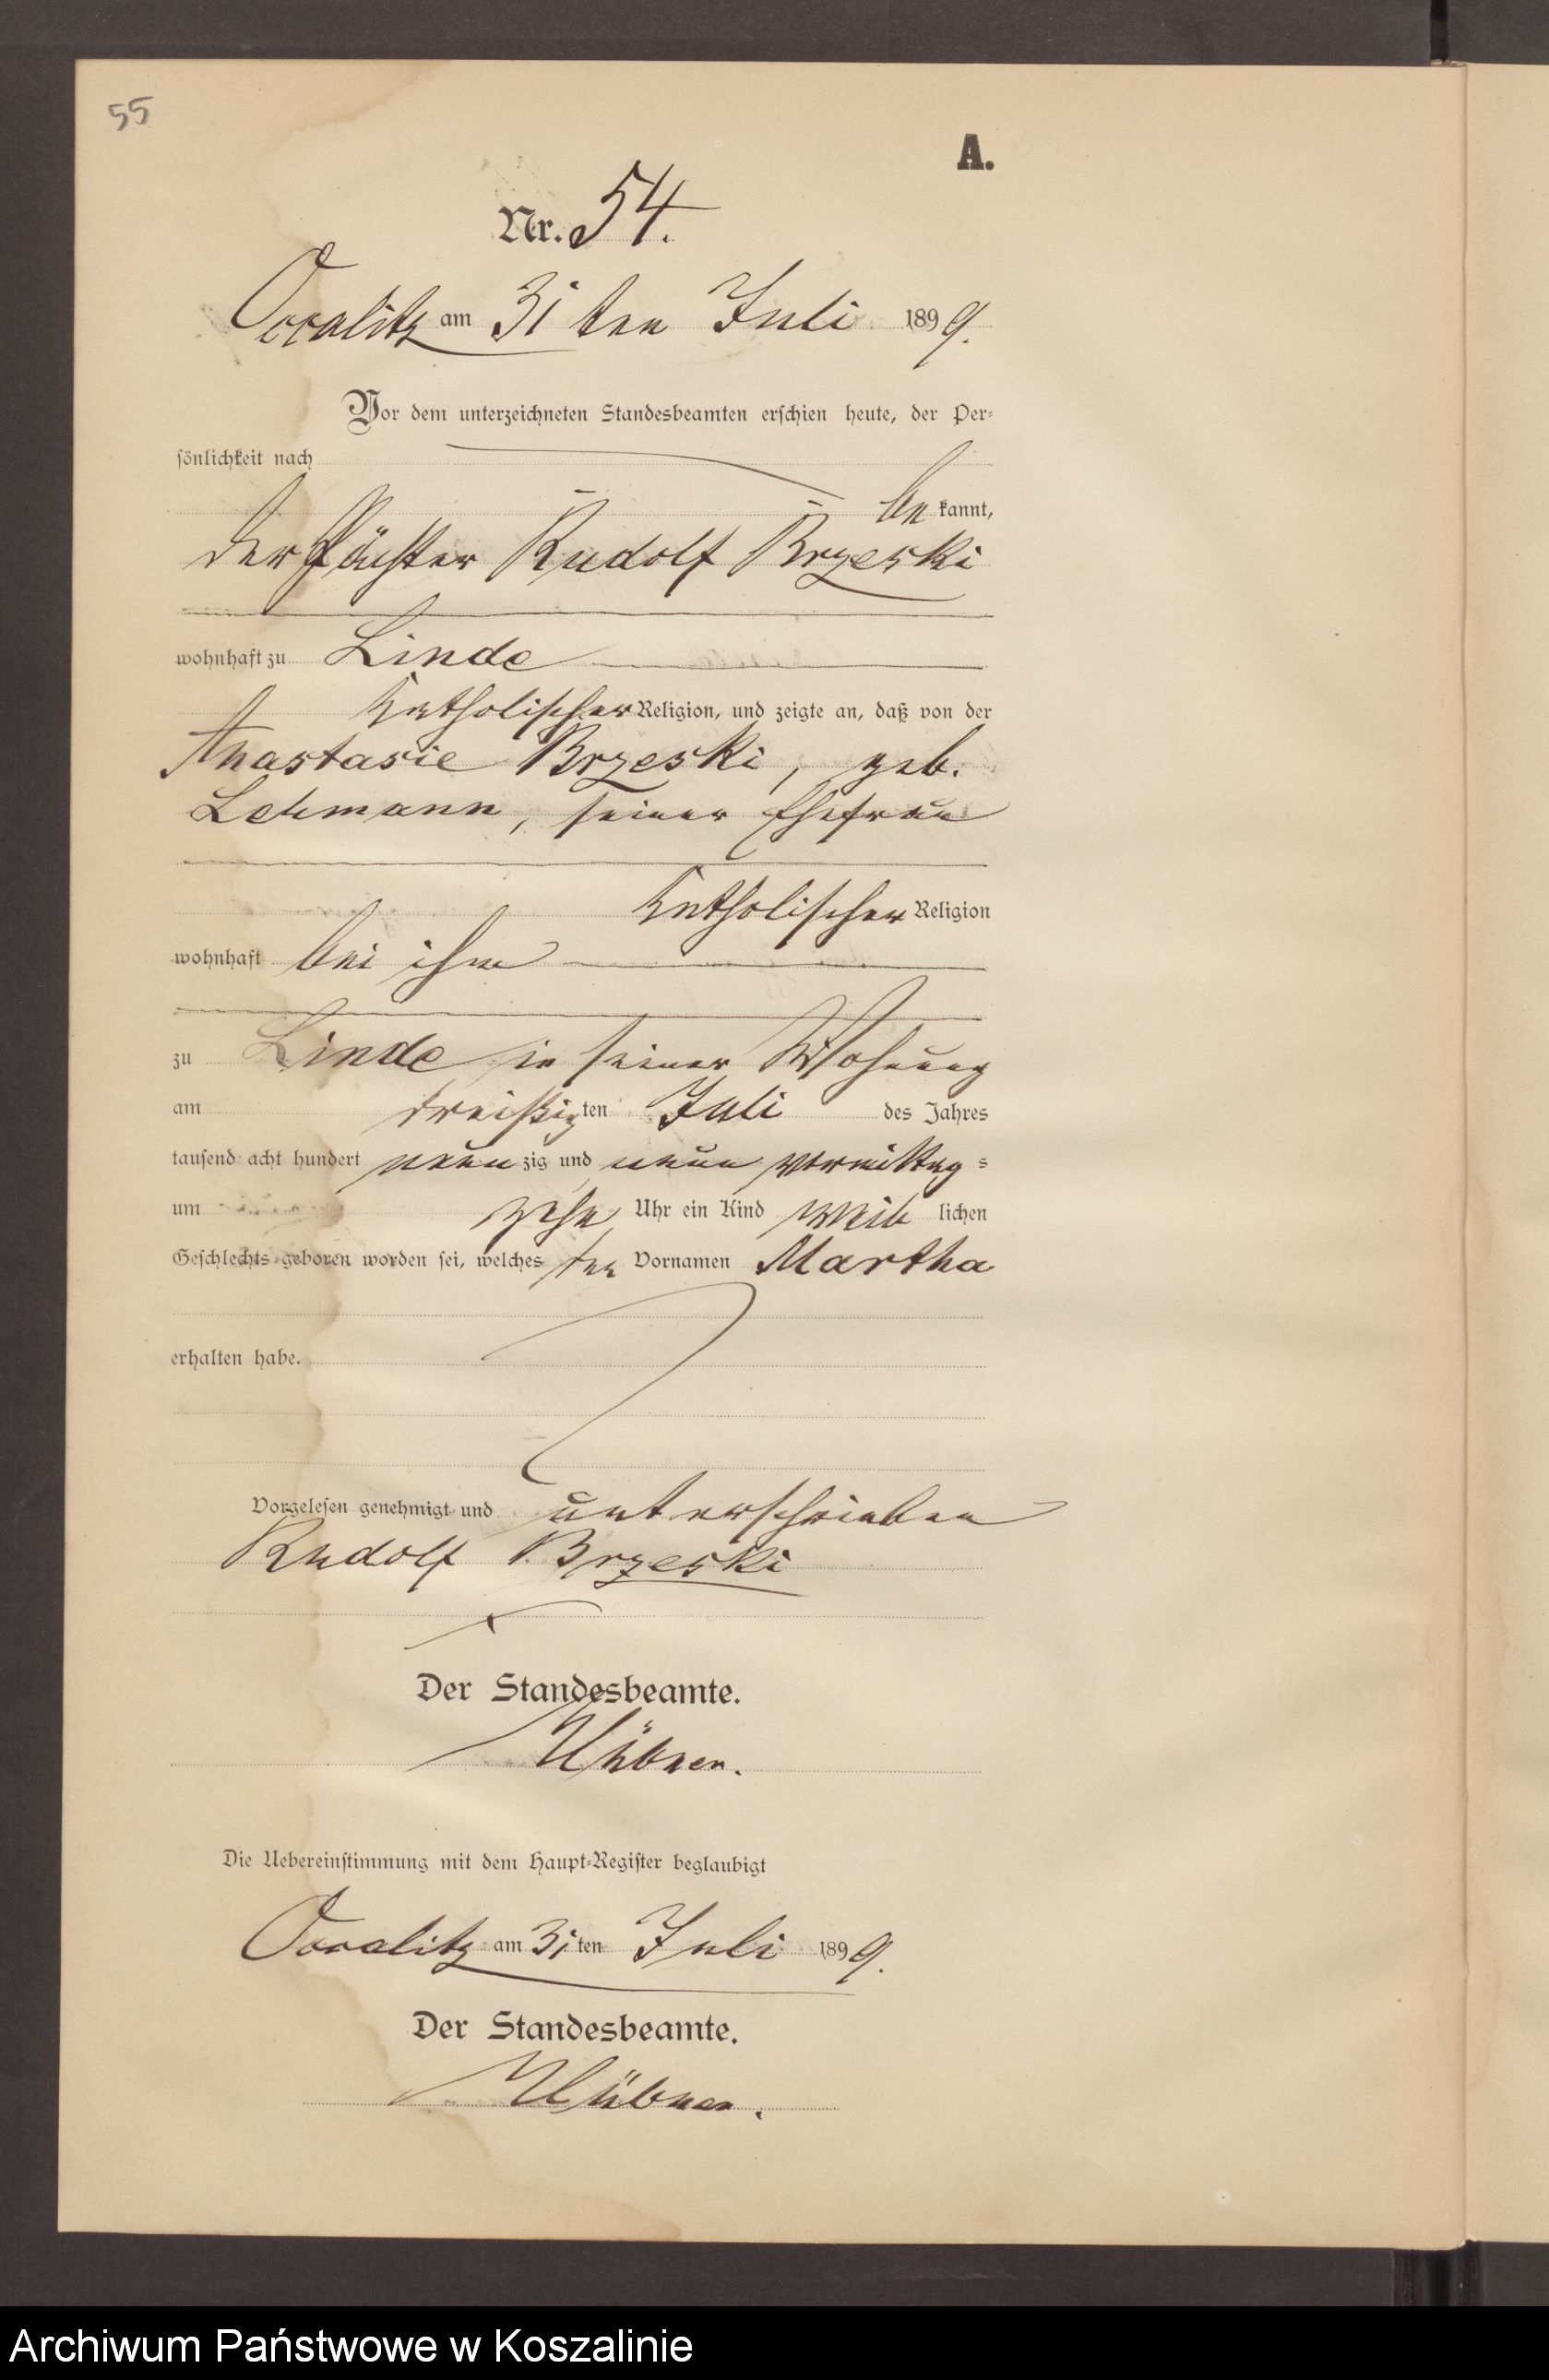 55
A.
Nr. 54.
am 31 ten Juli 1899.
Vor dem unterzeichneten Standesbeamten erschien heute, der Per-
sönlichkeit nach
be kannt,
der Pächter Rudolf Brzeski
wohnhaft zu Linde
katholischer Religion, und zeigte an, daß von der
Anastasie Brzeski, geb.
Lehmann, seiner Ehefrau
katholischer Religion
wohnhaft bei ihm
zu Linde in seiner Wohnung
am dreißigten Juli des Jahres
tausend acht hundert neunzig und neun vormittags
um zehn Uhr ein Kind weiblichen
Geschlechts geboren worden sei, welches den Vornamen Martha
erhalten habe.
Vorgelesen genehmigt und unterschrieben
Rudolf Brzeski
Der Standesbeamte.
Hübner.
Die Uebereinstimmung mit dem Haupt-Register beglaubigt
am 31ten Juli 1899.
Der Standesbeamte.
Hübner.
Archiwum Państwowe w Koszalinie